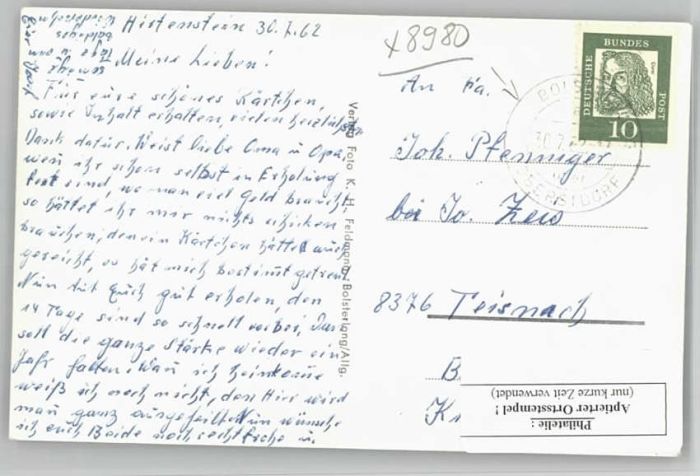 Hirtenstein 30.7.62
Meine Lieben!
Für eure schönes Kärtchen,
sowie Inhalt erhalten, vielen herzlichst
Dank dafür. Weist liebe Oma u Opa,
wen ihr schon selbst in Erholung
fort sind, wo man viel Geld braucht
so hättet ihr mir nichts schicken
brauchen, den ein Kärtchen hätte auch
gereicht, es hät mich bestimt gefreut
Nun tut Euch gut erholen, den
14 Tage sind so schnell vorbei, Dan
soll die ganze Stärke wieder ein
Jahr halten. Wan ich heimkomme
weiß ich noch nicht, den Hier wird
man ganz Nun wünsche
ich euch Beide noch recht frohe u.
Verlag Foto K. H. Feldmann, Bolsterlang/Allg.
x8980
DEUTSCHE BUNDES POST
10
BOLSTERLANG
30.7.62
OBERSTDORF
An Fa.
Joh. Pfenniger
bei Jo. Zeis
8376 Teisnach
B.
Philatelie:
Aptierter Ortsstempel!
(nur kurze Zeit verwendet)